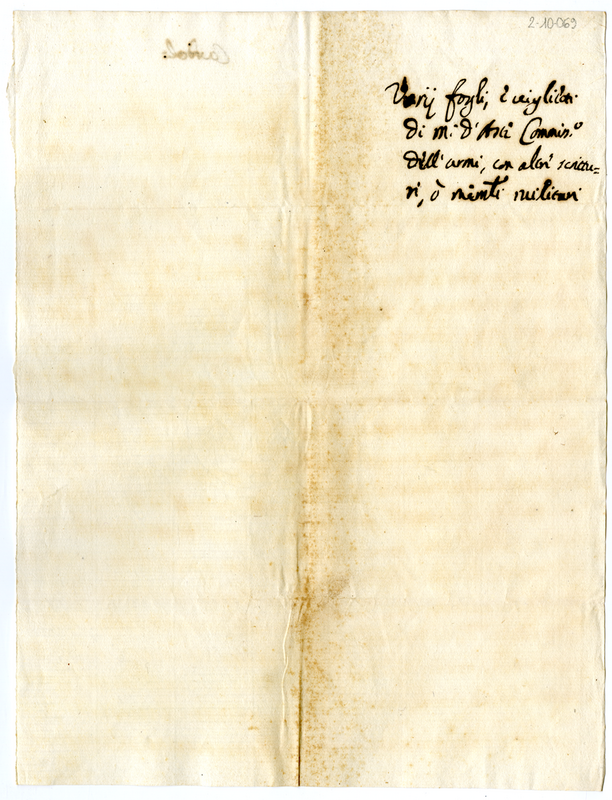 2-10-069
Varij fogli, e viglietti
di m.r d'Asti Commis.o
dell'armi, con altri scrittu=
ri, ò militari